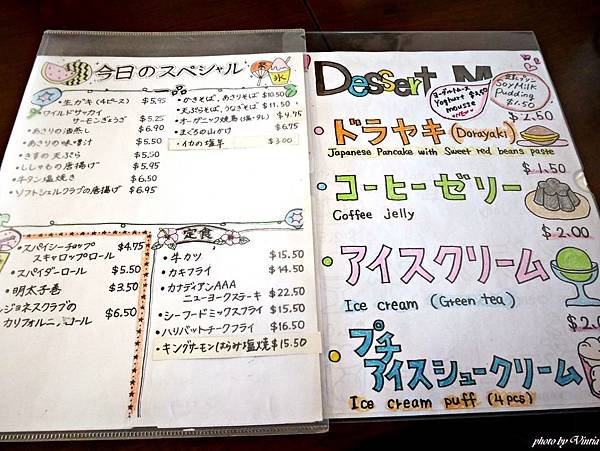 今日のスペシャル
氷
・生ガキ(4ピース) $5.95
・ワイルドサッカイ
サーモンごうざけ $5.25
・あさりの酒蒸し $6.90
・あさりの味噌汁 $5.50
・きすの天ぷら $5.50
・ししゃもの唐揚げ $5.95
・牛タン塩焼き $6.50
・ソフトシェルクラブの唐揚げ $6.95
・かきそば、あさりそば $10.50
・天ぷらそば、うなぎそば $11.50
・オーガニック焼鳥(塩・タレ) $4.75
・まぐろの山かけ $6.75
・イカの塩辛 $3.00
・スパイシーチョップ $4.75
スキャロップロール
・スパイダーロール $5.50
・明太子巻 $3.50
ンジョネスクラブの $6.50
カリフォルニアロール
定食
・牛カツ $15.50
・カキフライ $14.50
・カナディアンAAA
ニューヨークステーキ $22.50
・シーフードミックスフライ $15.50
・ハリバットチークフライ $16.50
・キングサーモンはらみ塩焼 $15.50
Dessert M
ヨーグルトムース
Yoghurt $3.50
mousse
豆乳プリン
Soy Milk
Pudding
$2.50
・ドラヤキ (Dorayaki)
Japanese Pancake with Sweet red beans paste
$1.50
・コーヒーゼリー
Coffee jelly
$2.00
・アイスクリーム
Ice cream (Green tea)
・プチ
アイスシュークリーム
Ice cream puff (4pcs)
photo by Vinria